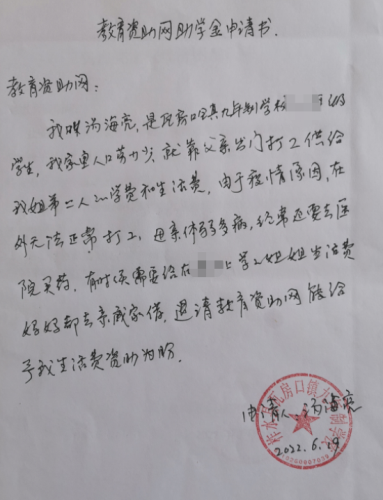 教育资助网助学金申请书.
教育资助网:
我叫冯海亮,是瓦房口镇九年制学校 的
学生,我家里人口劳力少,就靠父亲出门打工供给
我姐弟二人的学费和生活费,由于疫情原因,在
外无法正常打工,母亲体弱多病,经常还要去医
院买药。有时候需要给在 上学的姐姐出生活费
妈妈都去亲戚家借,恳请教育资助网能给
予我生活费资助为盼
申请人:冯海亮
2022.6.19
柞水县瓦房口镇九年制学校